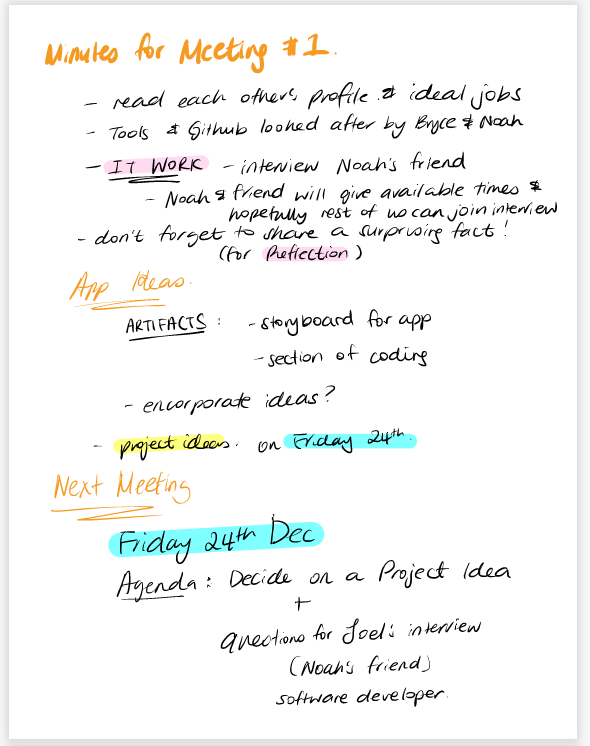 Minutes for Meeting #1.
- read each others profile & ideal jobs
- Tools & Github looked after by Bryce & Noah
- IT WORK - interview Noah's friend
- Noah & friend will give available times &
hopefully rest of us can join interview
- don't forget to share a surprising fact!
(for Reflection)
App Ideas.
ARTIFACTS : - storyboard for app
- section of coding
- encorporate ideas?
- project ideas. on Friday 24th.
Next Meeting
Friday 24th Dec
Agenda : Decide on a Project Idea
+
questions for Joel's interview
(Noah's friend)
software developer.